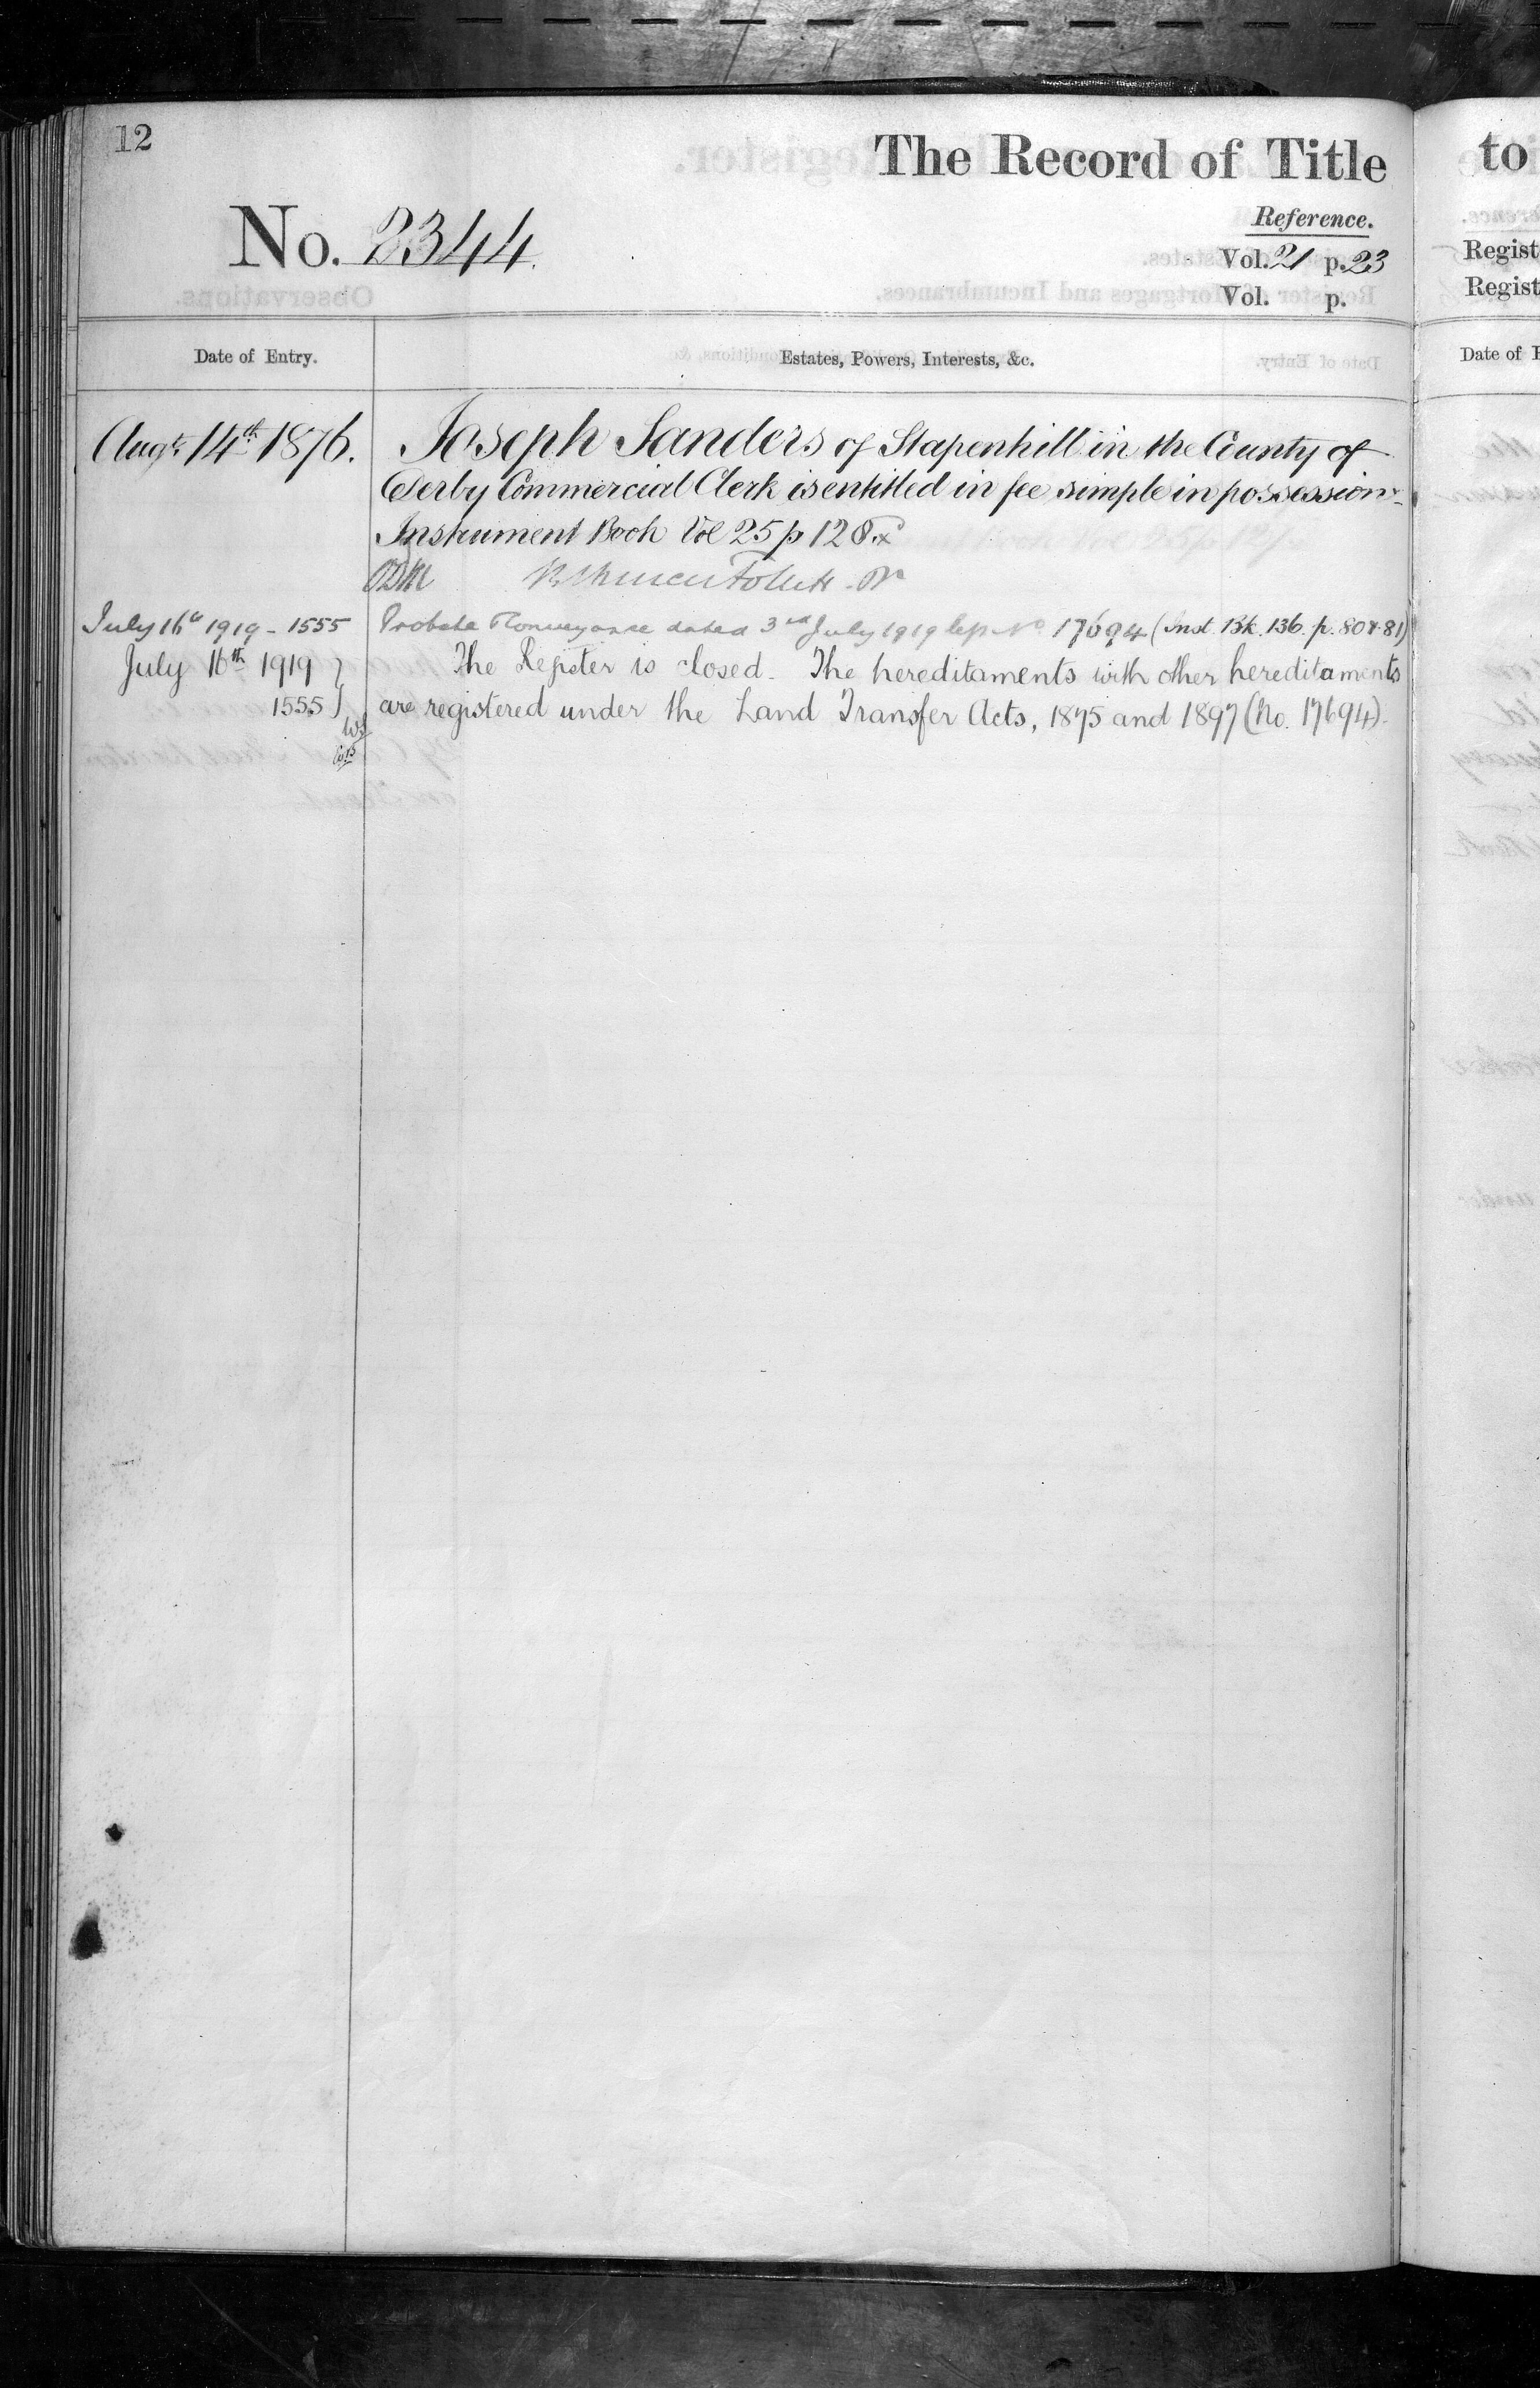 12
The Record of Title
No. 2344.
Reference.
Vol. 21 p. 23
Vol. p.
Date of Entry.
Estates, Powers, Interests, &c.
Augt. 14th 1876.
Joseph Sanders of Stapenhill in the County of
Derby Commercial Clerk is entitled in fee simple in possession
Instrument Book Vol 25 p 128
July 16th 1919 - 1555
Probate Conveyance dated 3rd July 1919 No 17694 (Inst. Bk. 136. p. 80 & 81)
July 16th 1919
1555
The Register is closed. The hereditaments with other hereditaments
are registered under the Land Transfer Acts, 1875 and 1897 (No. 17694).
to
Regist
Regist
Date of E